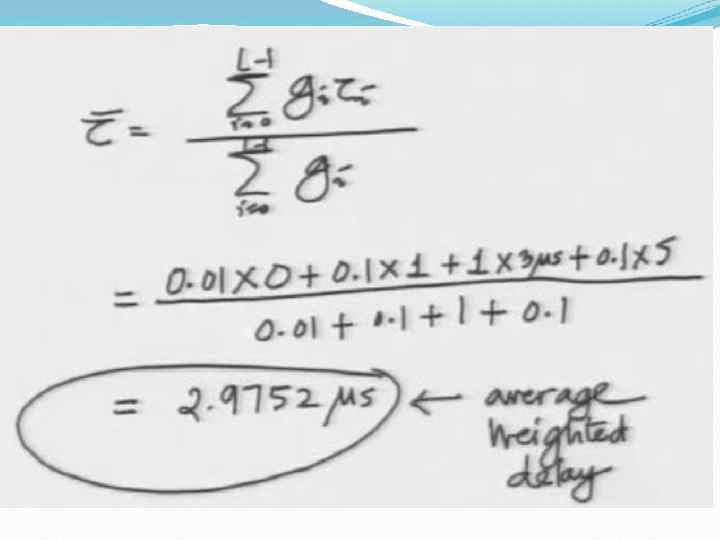 L-1
Σ gᵢ τᵢ
i=0
τ̄ =
L-1
Σ gᵢ
i=0
= 0.01 X 0 + 0.1 X 1 + 1 X 3μs + 0.1 X 5
0.01 + 0.1 + 1 + 0.1
= 2.9752 μs ← average
weighted
delay